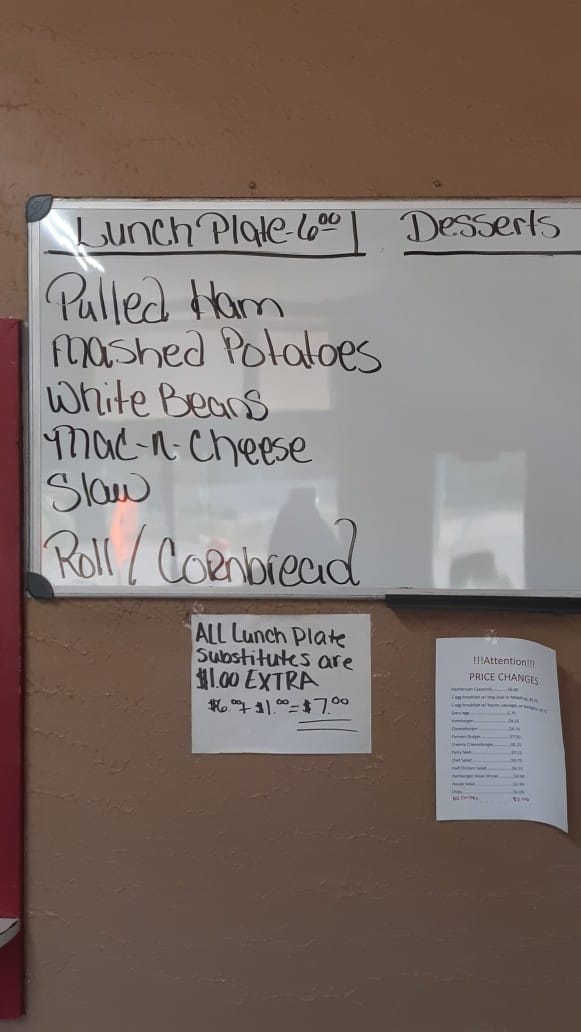 Lunch Plate-6⁰⁰
Desserts
Pulled Ham
Mashed Potatoes
White Beans
Mac-n-Cheese
Slaw
Roll / Cornbread
ALL Lunch Plate
Substitutes are
$1.00 EXTRA
$6.⁰⁰+ $1.⁰⁰=$7.⁰⁰
!!!Attention!!!
PRICE CHANGES
Hamburger
Cheeseburger
Chef Salad
House Salad